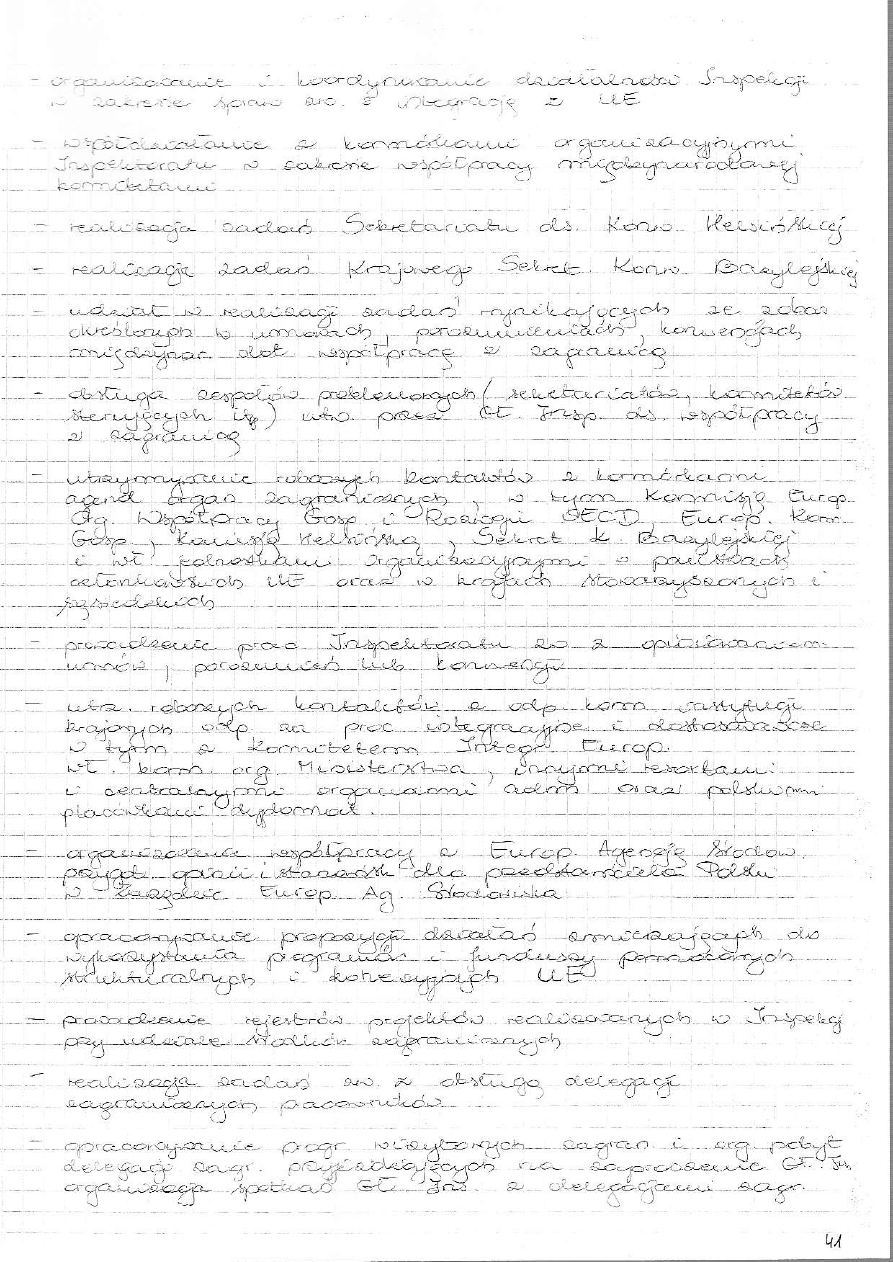 - organizowanie i koordynowanie działalności Inspekcji
w zakresie spraw zw. z integracją z UE
- współdziałanie z komórkami organizacyjnymi
Inspektoratu w zakresie współpracy międzynarodowej
komitetami
- realizacja zadań Sekretariatu ds. Konw Helsińskiej
- realizacja zadań Krajowego Sekret. Konw Bazylejskiej
- udział w realizacji zadań wynikających ze zobow
określonych w umowach, porozumieniach, konwencjach
międzynar dot współpracę z zagranicą
- obsługa zespołów problemowych (sekretariatów, komitetów
sterujących itp) utw. przez Gł. Insp. ds. współpracy
z zagranicą
- utrzymywanie roboczych kontaktów z komórkami
agend organ zagranicznych, w tym Komisją Europ.
Org. Współpracy Gosp. i Rozwoju OECD, Europ. Kom
Gosp, Komisją Helsińską, Sekret K. Bazylejskiej
i wł jednostkami organizacyjnymi w państwach
członkowskich UE oraz w krajach stowarzyszonych i
sąsiedzkich
- prowadzenie prac Inspektoratu zw z opiniowaniem
umów, porozumień lub konwencji
- utrz. roboczych kontaktów z odp kom instytucji
krajowych odp za proc integracyjne i dostosowawcze
w tym z Komitetem Integr Europ.
wł. kom. org Ministerstwa, innymi resortami
i centralnymi organami adm oraz polskimi
placówkami dyplomat.
- organizowanie współpracy z Europ. Agencją Środow.
przygot opinii i stanowisk dla przedstawiciela Polski
w Zarządzie Europ. Ag. Środowiska
- opracowywanie propozycji działań zmierzających do
wykorzystania programów i funduszy pomocowych
strukturalnych i kohezyjnych UE
- prowadzenie rejestrów projektów realizowanych w Inspekcji
przy udziale środków zagranicznych
- realizacja zadań zw. z obsługą delegacji
zagranicznych pracowników
- opracowywanie progr. wizytowych zagran i org pobyt
delegacji zagr. przyjeżdżających na zaproszenie Gł. In.
organizacja spotkań Gł. Ins. z delegacjami zagr.
41